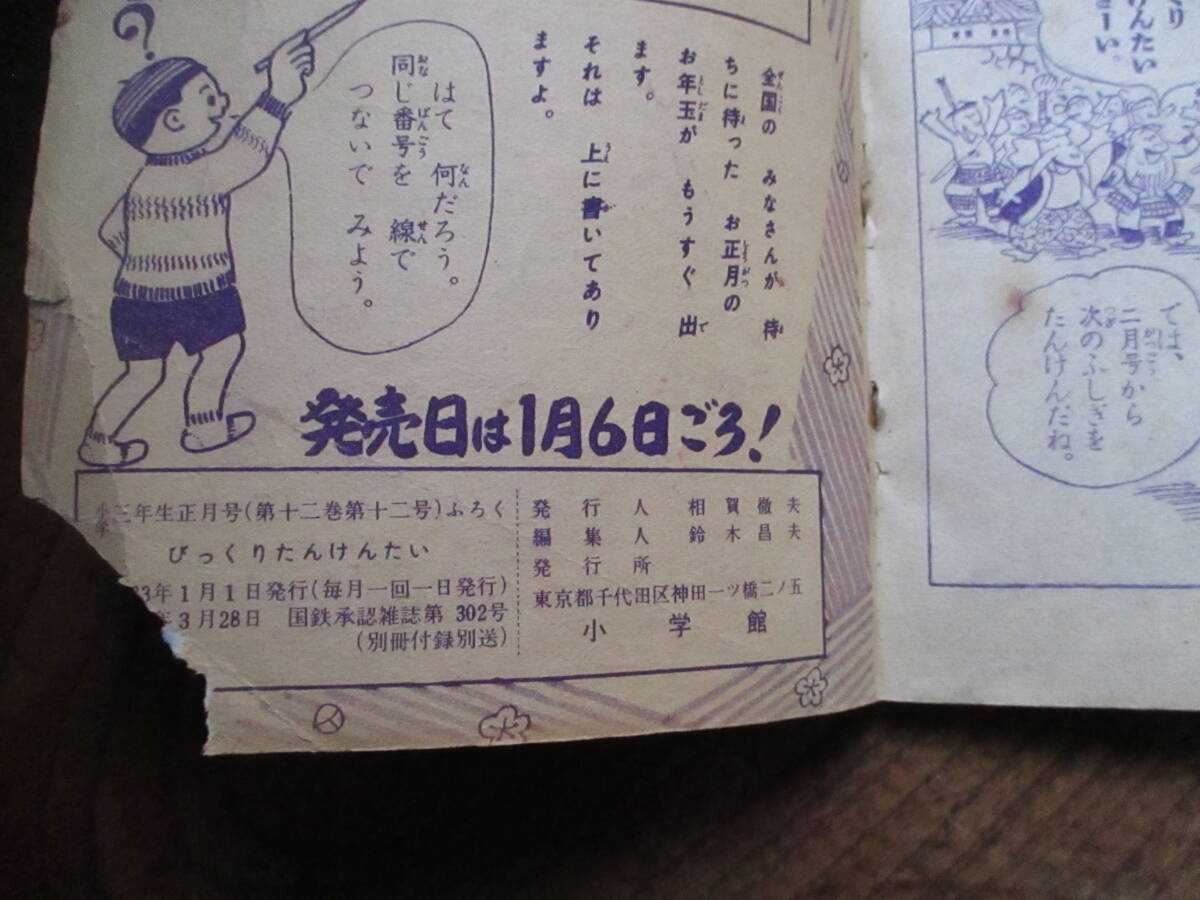 ?
全国の みなさんが 待
ちに待った お正月の
お年玉が もうすぐ 出
ます。
それは 上に書いてあり
ますよ。
はて 何だろう。
同じ番号を 線で
つないで みよう。
発売日は1月6日ごろ!
小学三年生正月号(第十二巻第十二号)ふろく
びっくりたんけんたい
3年1月1日発行(毎月一回一日発行)
年3月28日 国鉄承認雑誌第302号
(別冊付録別送)
発行人 相賀徹夫
編集人 鈴木昌夫
発行所
東京都千代田区神田一ツ橋二ノ五
小学館
り
けんたい
さーい。
では、
二月号から
次のふしぎを
たんけんだね。